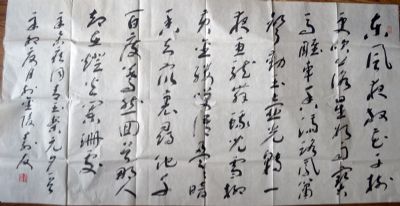 东风夜放花千树
更吹落星如雨宝
马雕车香满路凤箫
声动玉壶光转一
夜鱼龙舞蛾儿雪柳
黄金缕笑语盈盈暗
香去众里寻他千
百度蓦然回首那人
却在灯火阑珊处
辛弃疾词青玉案元夕